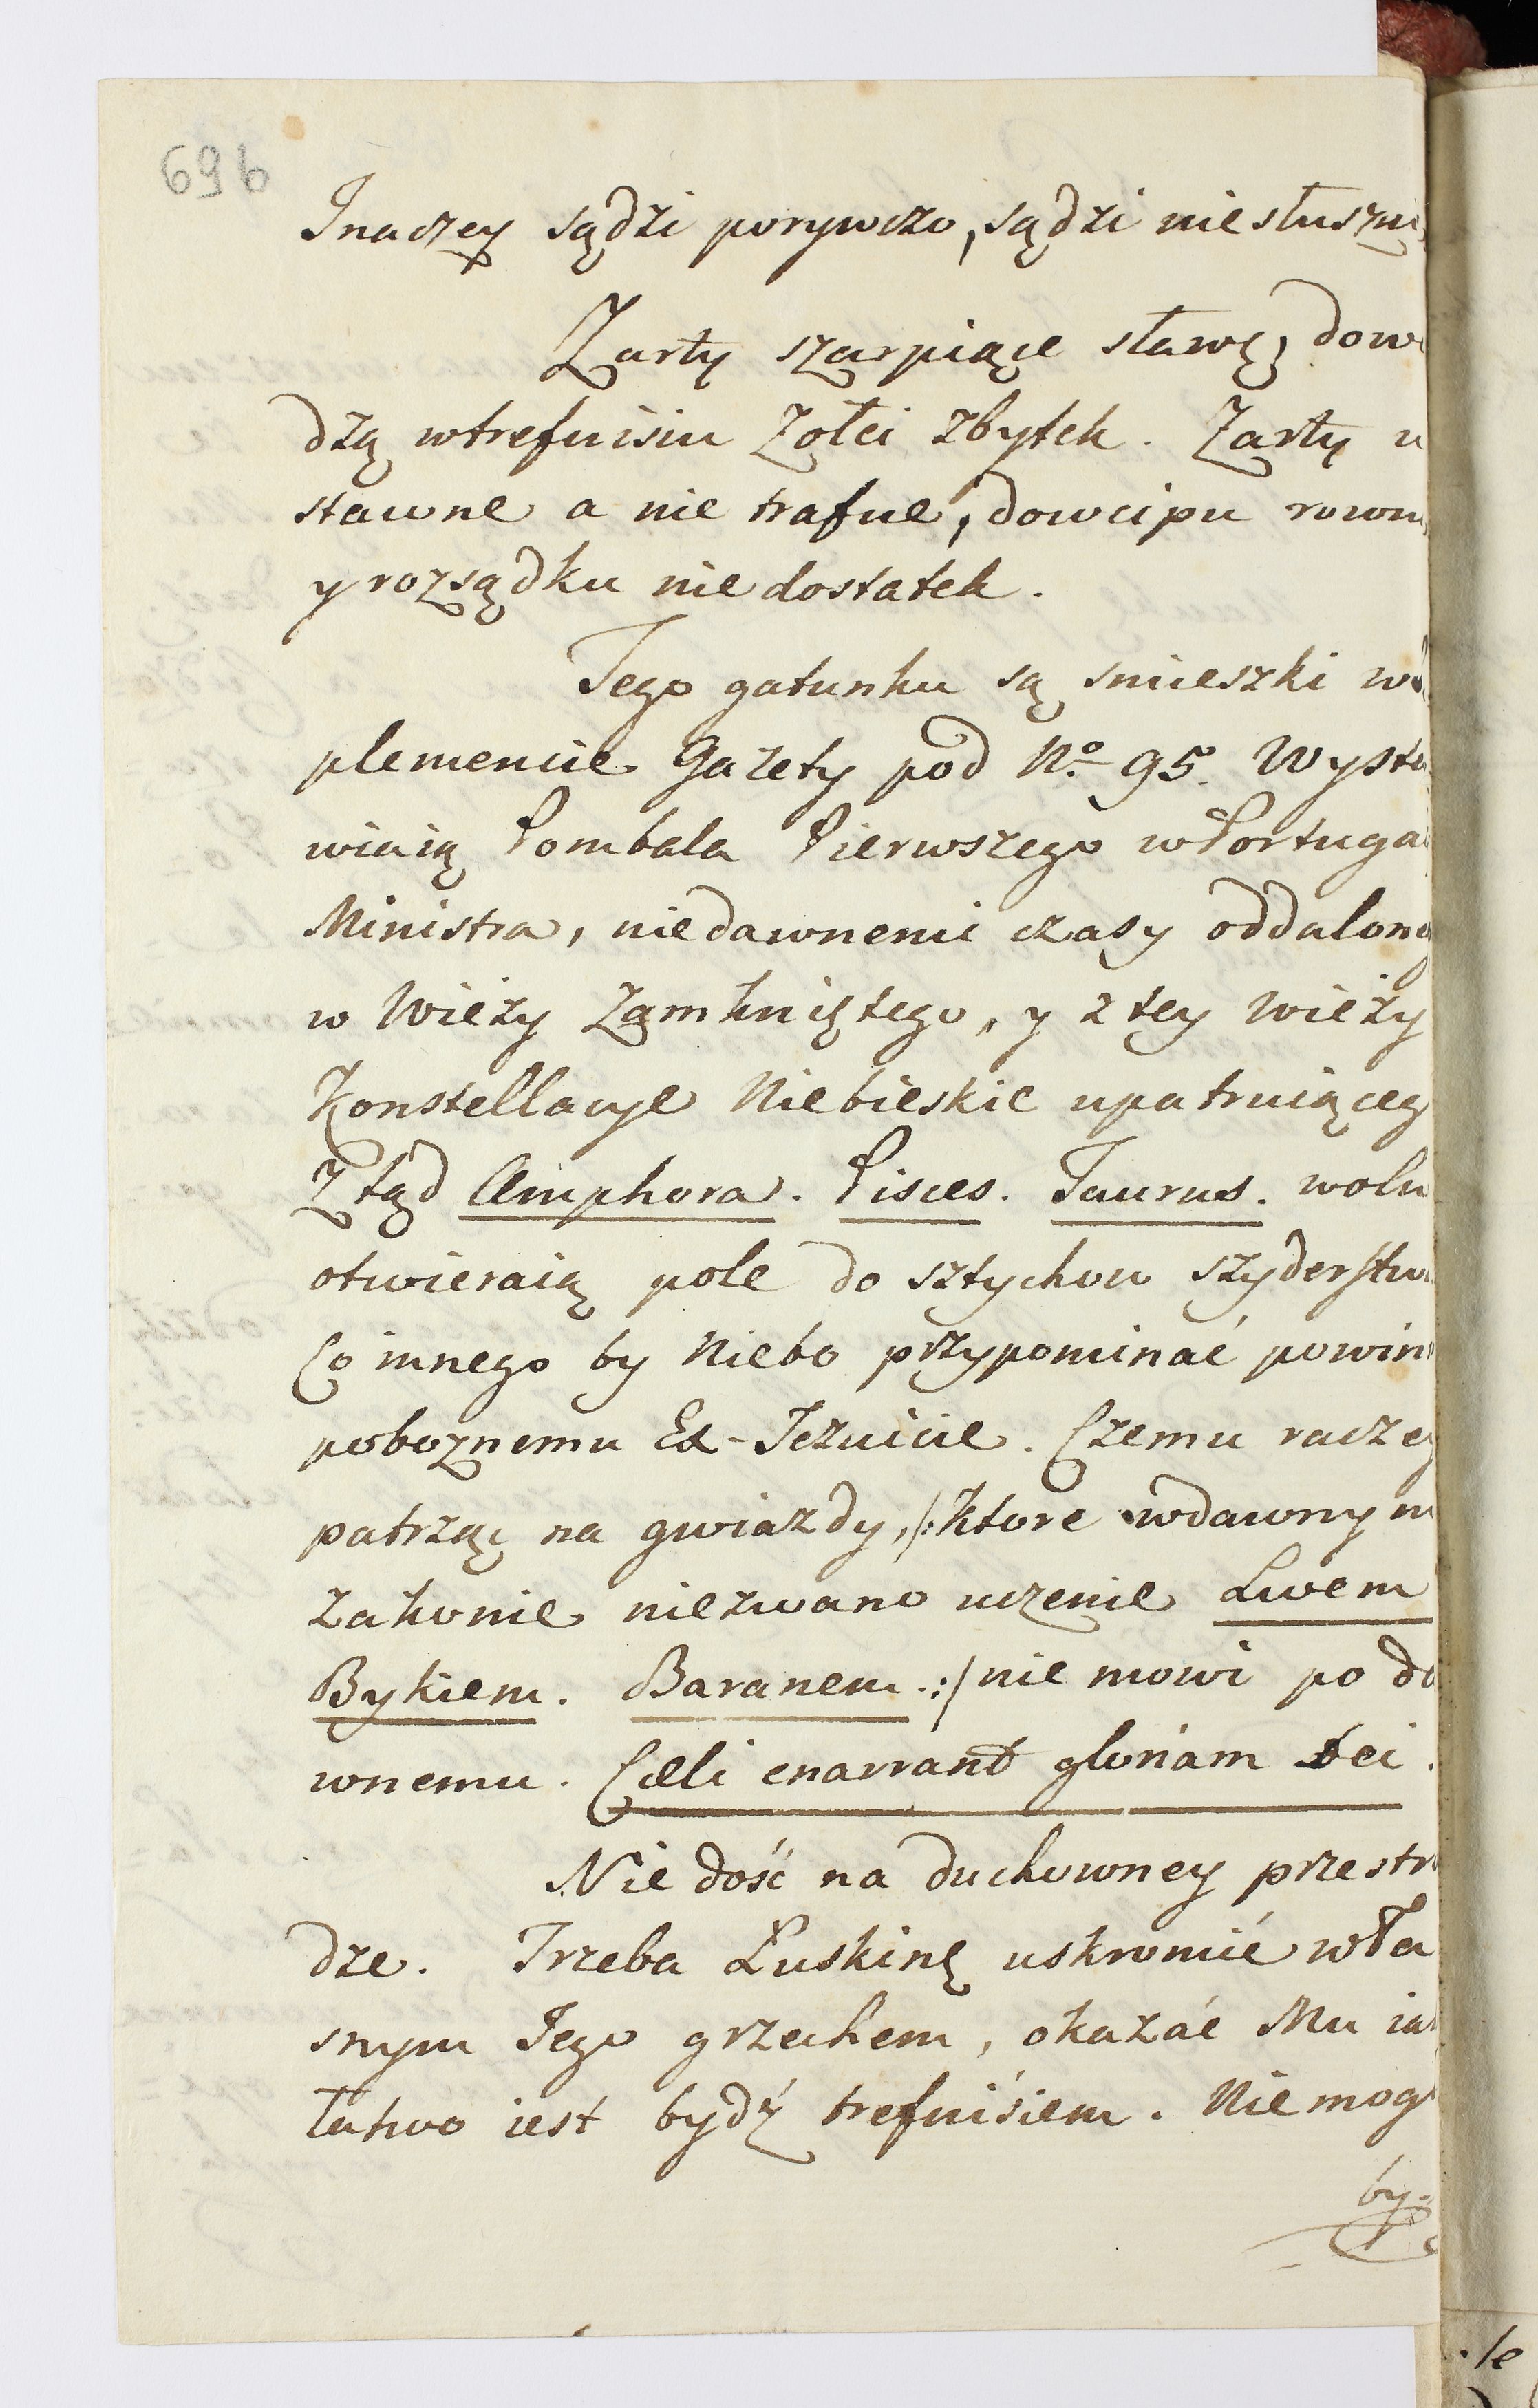 696
Inaczey sądzi porywczo, sądzi niesłuszni
Zarty szarpiące sławę, dow
dzą wtrefnisiu Zołci zbytek. Zarty u
stawne a nie trafne, dowcipu rown
y rozsądku nie dostatek.
Tego gatunku są smieszki w
plemencie Gazety pod No 95. Wysta
wiaią Pombala Pierwszego w Portugal
Ministra, niedawnemi czasy oddalone
w Wieży Zamkniętego, y z tey Wieży
Konstellacye Niebieskie upatruiąceg
Ztąd Amphora. Pisces. Taurus. woln
otwieraią pole do sztychow szyderstw
Co innego by Niebo przypominać powin
poboznemu Ex-Jezuicie. Czemu raczey
patrząc na gwiazdy, /: ktore w dawnym
zakonie niezwano uczenie Lwem
Bykiem. Baranem. :/ nie mowi po da
wnemu. Cæli enarrant gloriam Dei.
Nie dość na duchowney przestro
dze. Trzeba Łuskinę uskromić wła
snym Jego grzechem, okazać Mu iak
łatwo iest bydź trefnisiem. Nie mog
by-
le